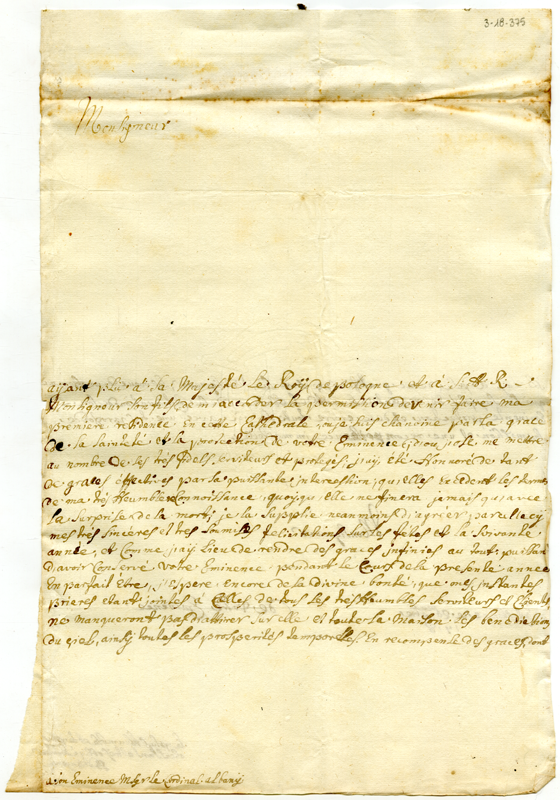 3-18-375
Monsigneur
ayant plu a sa Majesté Le Roy de pologne et á S. Alt. R.
Monsigneur son fils de m'accorder la permission de venir faire ma
premiere residence en cette Cathédrale ou je suis chanoine par la grace
de sa sainteté et la protection de votre Eminence, dou j'ose me mettre
au nombre de ses trés fidels serviteurs et protegés, j'ay été Honnoré de tant
de graces effectives par la puissante intercession, qu'elles excedent les bornes
de ma trés Heumble reConnoissance, quoyqu'elle ne finera jamais qu'avec
la surprise de la mort; je la supplie neanmoins d'agréer par celle cy
mes trés sincéres et trés soumises felicitations sur les fétes et la suivante
année, et Comme j'ay Lieu de rendre des graces infinies au tout puissant
d'avoir Conservé Votre Eminence pendant le Cours de la presente année
En parfait Etre, j'Espere encore de la divine bonté, que mes instantes
prieres etant jointes á Celles de tous les trés Heumbles serviteurs et Clients
ne manqueront pas d'attirer sur elle et toute la Maison les benedictions
du ciel, ainsy toutes les prosperites temporelles. En recompense des graces, dont
a son Eminence Msgr le Cardinal Albany